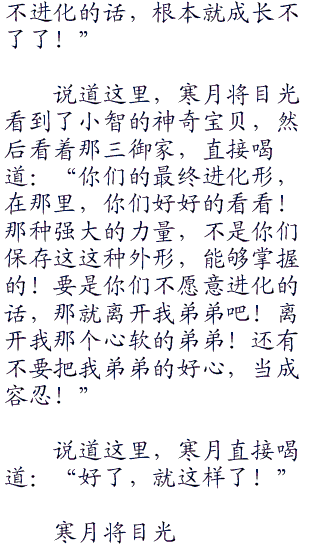 不进化的话，根本就成长不
了了！”
说道这里，寒月将目光
看到了小智的神奇宝贝，然
后看着那三御家，直接喝
道：“你们的最终进化形，
在那里，你们好好的看看！
那种强大的力量，不是你们
保存这这种外形，能够掌握
的！要是你们不愿意进化的
话，那就离开我弟弟吧！离
开我那个心软的弟弟！还有
不要把我弟弟的好心，当成
容忍！”
说道这里，寒月直接喝
道：“好了，就这样了！”
寒月将目光